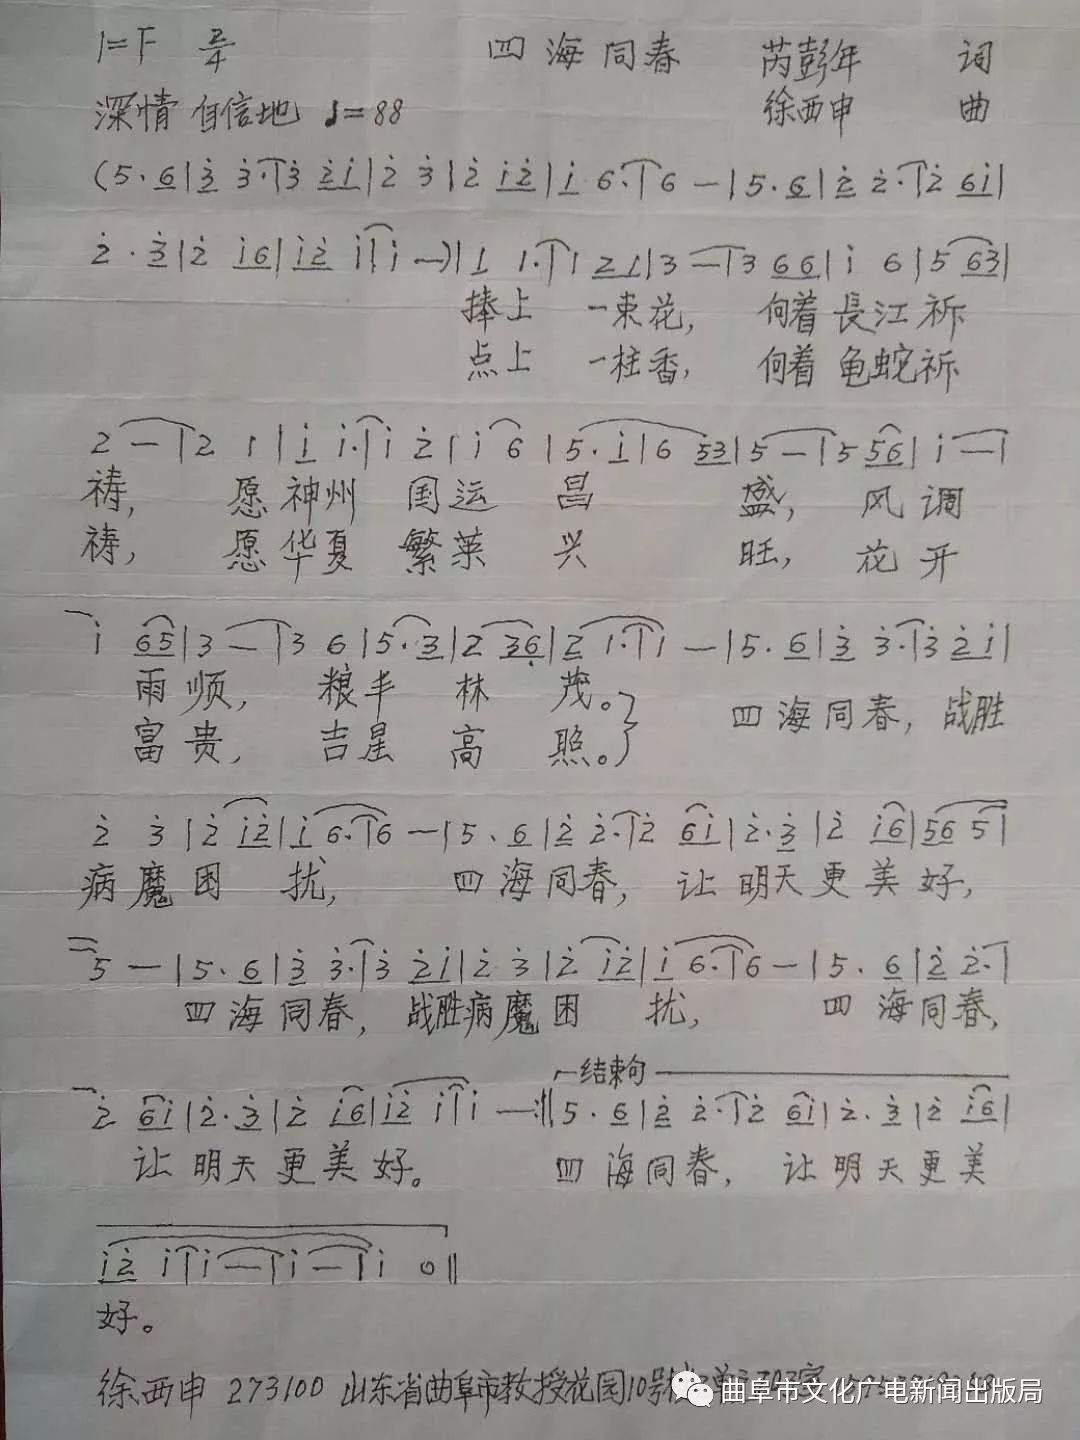 1=F 2/4 四海同春 芮彭年 词
深情 自信地 ♩=88 徐西申 曲
(5·6|3̇ 3̇·|3̇ 2̇1̇|2̇ 3̇|2̇ 1̇2̇|1̇ 6·|6 —|5·6|2̇ 2̇·|2̇ 61̇|
2̇·3̇|2̇ 1̇6|1̇2̇ 1̇|1̇ —)|1 1·|1 21|3 —|3 66|1̇ 6|5 63|
捧上 一束花, 向着長江祈
点上 一柱香, 向着龟蛇祈
2 —|2 1|1̇ 1̇·|1̇ 2̇|1̇ 6|5·1̇|6 53|5 —|5 56|1̇ —|
祷, 愿神州 国运 昌 盛, 风调
祷, 愿华夏 繁荣 兴 旺, 花开
1̇ 65|3 —|3 6|5·3|2 36̣|2 1·|1 —|5·6|3̇ 3̇·|3̇ 2̇1̇|
雨顺, 粮丰 林 茂。 四海同春, 战胜
富贵, 吉星 高 照。
2̇ 3̇|2̇ 1̇2̇|1̇ 6·|6 —|5·6|2̇ 2̇·|2̇ 61̇|2̇·3̇|2̇ 1̇6|56 5|
病魔困 扰, 四海同春, 让明天更美好,
5 —|5·6|3̇ 3̇·|3̇ 2̇1̇|2̇ 3̇|2̇ 1̇2̇|1̇ 6·|6 —|5·6|2̇ 2̇·|
四海同春, 战胜病魔困 扰, 四海同春,
结束句
2̇ 61̇|2̇·3̇|2̇ 1̇6|1̇2̇ 1̇|1̇ —:‖5·6|2̇ 2̇·|2̇ 61̇|2̇·3̇|2̇ 1̇6|
让明天更美好。 四海同春, 让明天更美
1̇2̇ 1̇|1̇ —|1̇ —|1̇ 0‖
好。
徐西申 273100 山东省曲阜市教授花园10号楼
曲阜市文化广电新闻出版局